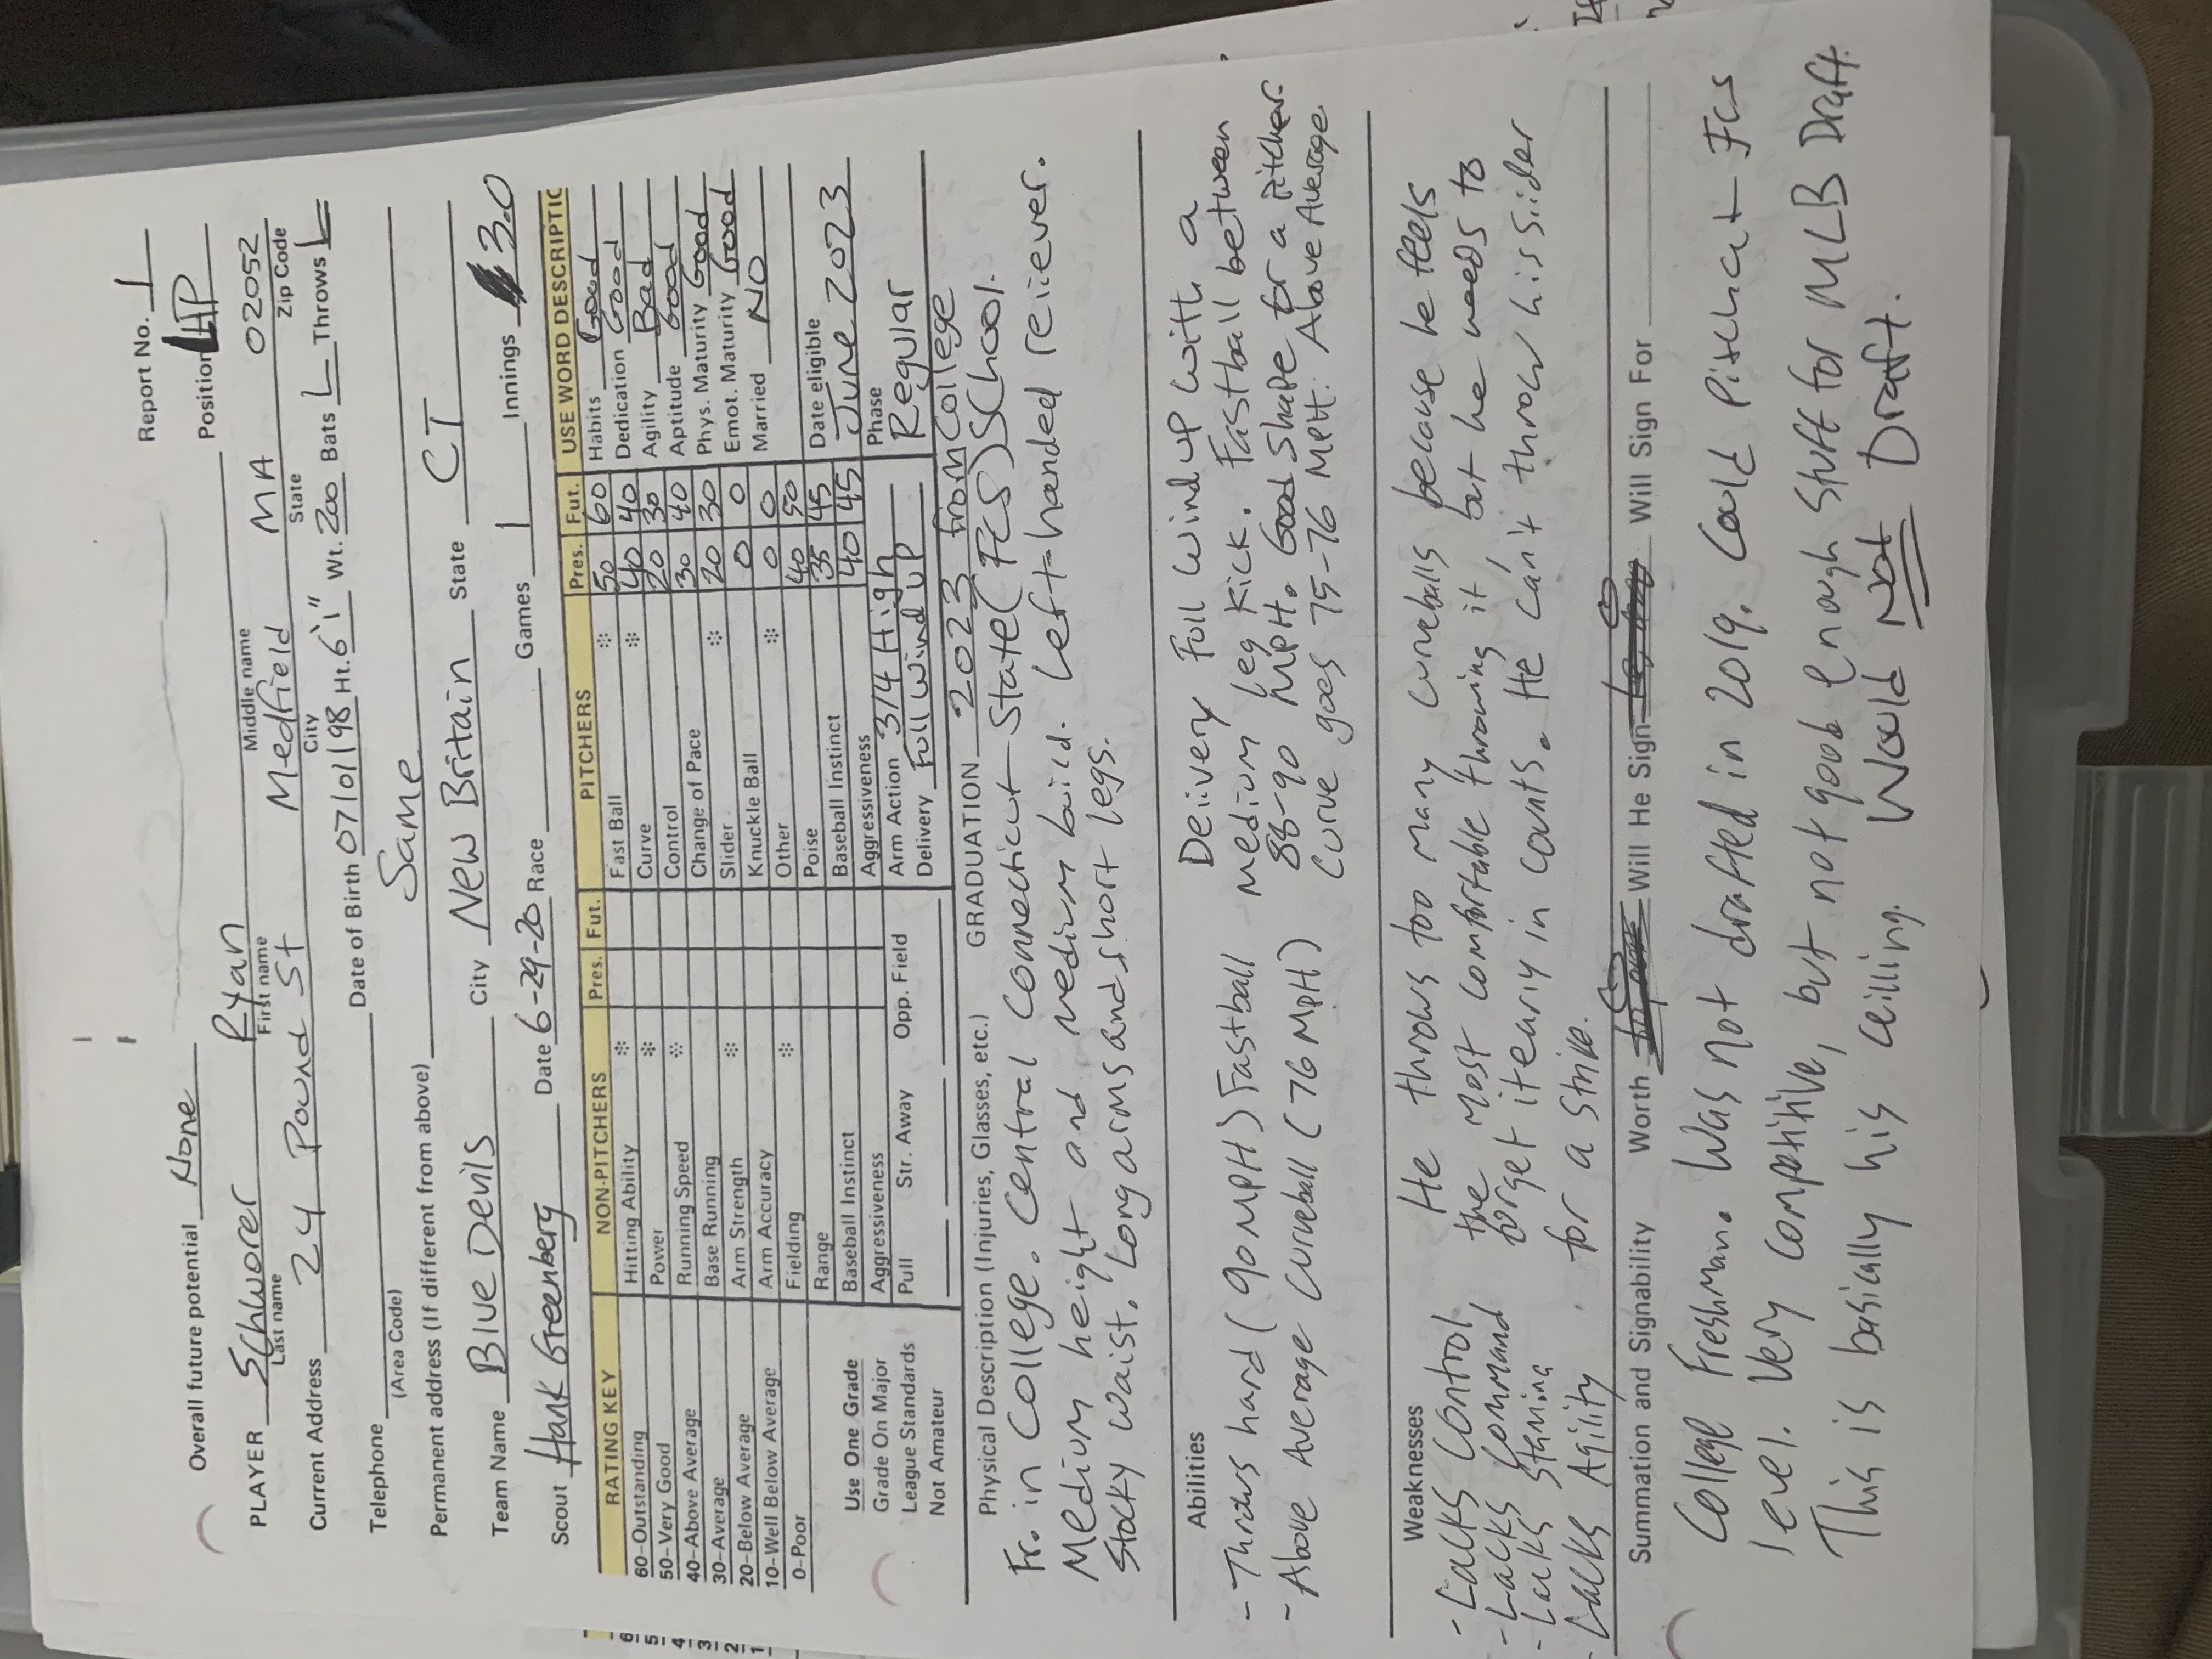 Report No. 1
Overall future potential None Position LHP
PLAYER Schworer Ryan
Last name First name Middle name
Current Address 24 Pound St Medfield MA 02052
City State Zip Code
Telephone Date of Birth 07/01/98 Ht. 6'1" Wt. 200 Bats L Throws L
(Area Code)
Permanent address (If different from above) Same
Team Name Blue Devils City New Britain State CT
Scout Hank Greenberg Date 6-29-20 Race Games 1 Innings 3.0
RATING KEY NON-PITCHERS Pres. Fut. PITCHERS Pres. Fut. USE WORD DESCRIPTIO
60-Outstanding Hitting Ability * Fast Ball * 50 60 Habits Good
50-Very Good Power * Curve * 40 40 Dedication Good
40-Above Average Running Speed * Control 20 30 Agility Bad
30-Average Base Running Change of Pace 30 40 Aptitude Good
20-Below Average Arm Strength * Slider * 20 30 Phys. Maturity Good
10-Well Below Average Arm Accuracy Knuckle Ball 0 0 Emot. Maturity Good
0-Poor Fielding * Other * 0 0 Married NO
Range Poise 40 50
Baseball Instinct Baseball Instinct 35 45 Date eligible
Aggressiveness Aggressiveness 40 45 June 2023
Use One Grade
Grade On Major
League Standards
Not Amateur
Pull Str. Away Opp. Field
Arm Action 3/4 High
Delivery Full Wind up
Phase
Regular
Physical Description (Injuries, Glasses, etc.) GRADUATION 2023 from College
Fr. in College. Central Connecticut State (FCS) School.
Medium height and medium build. Left-handed reliever.
Stocky waist. Long arms and short legs.
Abilities
- Throws hard (90 MPH) Fastball
- Above Average Curveball (76 MPH)
Delivery Full Wind up with a
medium leg kick. Fastball between
88-90 MPH. Good Shape for a pitcher.
Curve goes 75-76 MPH. Above Average
Weaknesses
- Lacks Control
- Lacks Command
- Lacks Stamina
- Lacks Agility
He throws too many curveballs because he feels
the most comfortable throwing it, but he needs to
forget it early in counts. He can't throw his slider
for a strike.
Summation and Signability Worth Will He Sign Will Sign For
College Freshman. Was not drafted in 2019. Could Pitch at FCS
level. Very competitive, but not good enough Stuff for MLB Draft.
This is basically his ceiling. Would Not Draft.